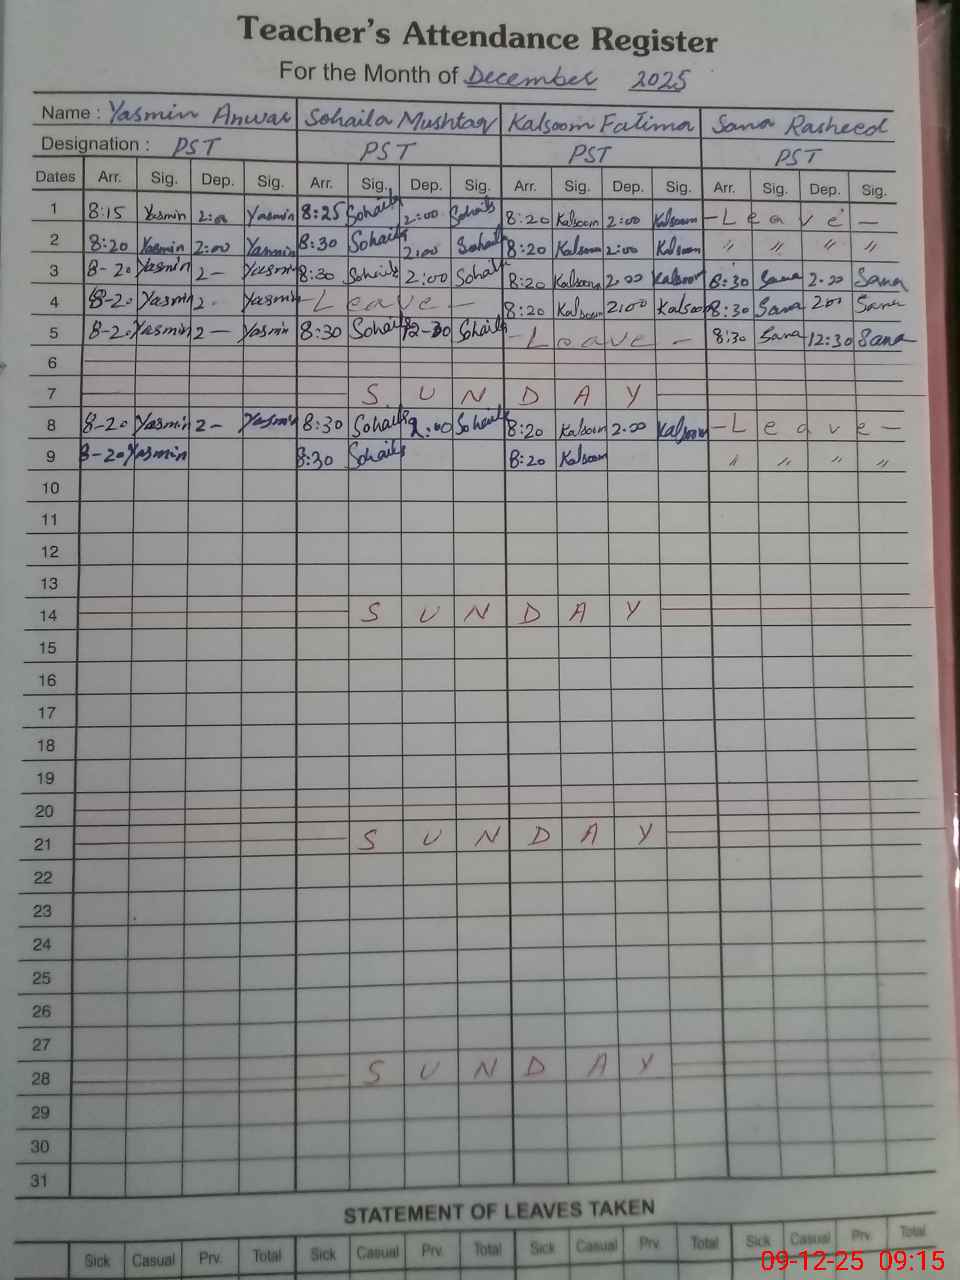 Teacher's Attendance Register
For the Month of December 2025
Name : Yasmin Anwar Sohaila Mushtaq Kalsoom Fatima Sana Rasheed
Designation : PST PST PST PST
Dates Arr. Sig. Dep. Sig. Arr. Sig. Dep. Sig. Arr. Sig. Dep. Sig. Arr. Sig. Dep. Sig.
1 8:15 Yasmin 2:00 Yasmin 8:25 Sohaila 2:00 Sohaila 8:20 Kalsoom 2:00 Kalsoom - Leave -
2 8:20 Yasmin 2:00 Yasmin 8:30 Sohaila 2:00 Sohaila 8:20 Kalsoom 2:00 Kalsoom " " " "
3 8-20 Yasmin 2- Yasmin 8:30 Sohaila 2:00 Sohaila 8:20 Kalsoom 2:00 Kalsoom 8:30 Sana 2.00 Sana
4 8-20 Yasmin 2. Yasmin - Leave - 8:20 Kalsoom 2:00 Kalsoom 8:30 Sana 200 Sana
5 8-20 Yasmin 2- Yasmin 8:30 Sohaila 12-30 Sohaila - Leave - 8:30 Sana 12:30 Sana
6
7 SUNDAY
8 8-20 Yasmin 2- Yasmin 8:30 Sohaila 2:00 Sohaila 8:20 Kalsoom 2:00 Kalsoom - Leave -
9 8-20 Yasmin 8:30 Sohaila 8:20 Kalsoom " " " "
10
11
12
13
14 SUNDAY
15
16
17
18
19
20
21 SUNDAY
22
23
24
25
26
27
28 SUNDAY
29
30
31
STATEMENT OF LEAVES TAKEN
Sick Casual Prv. Total Sick Casual Prv. Total Sick Casual Prv. Total Sick Casual Prv. Total
09-12-25 09:15